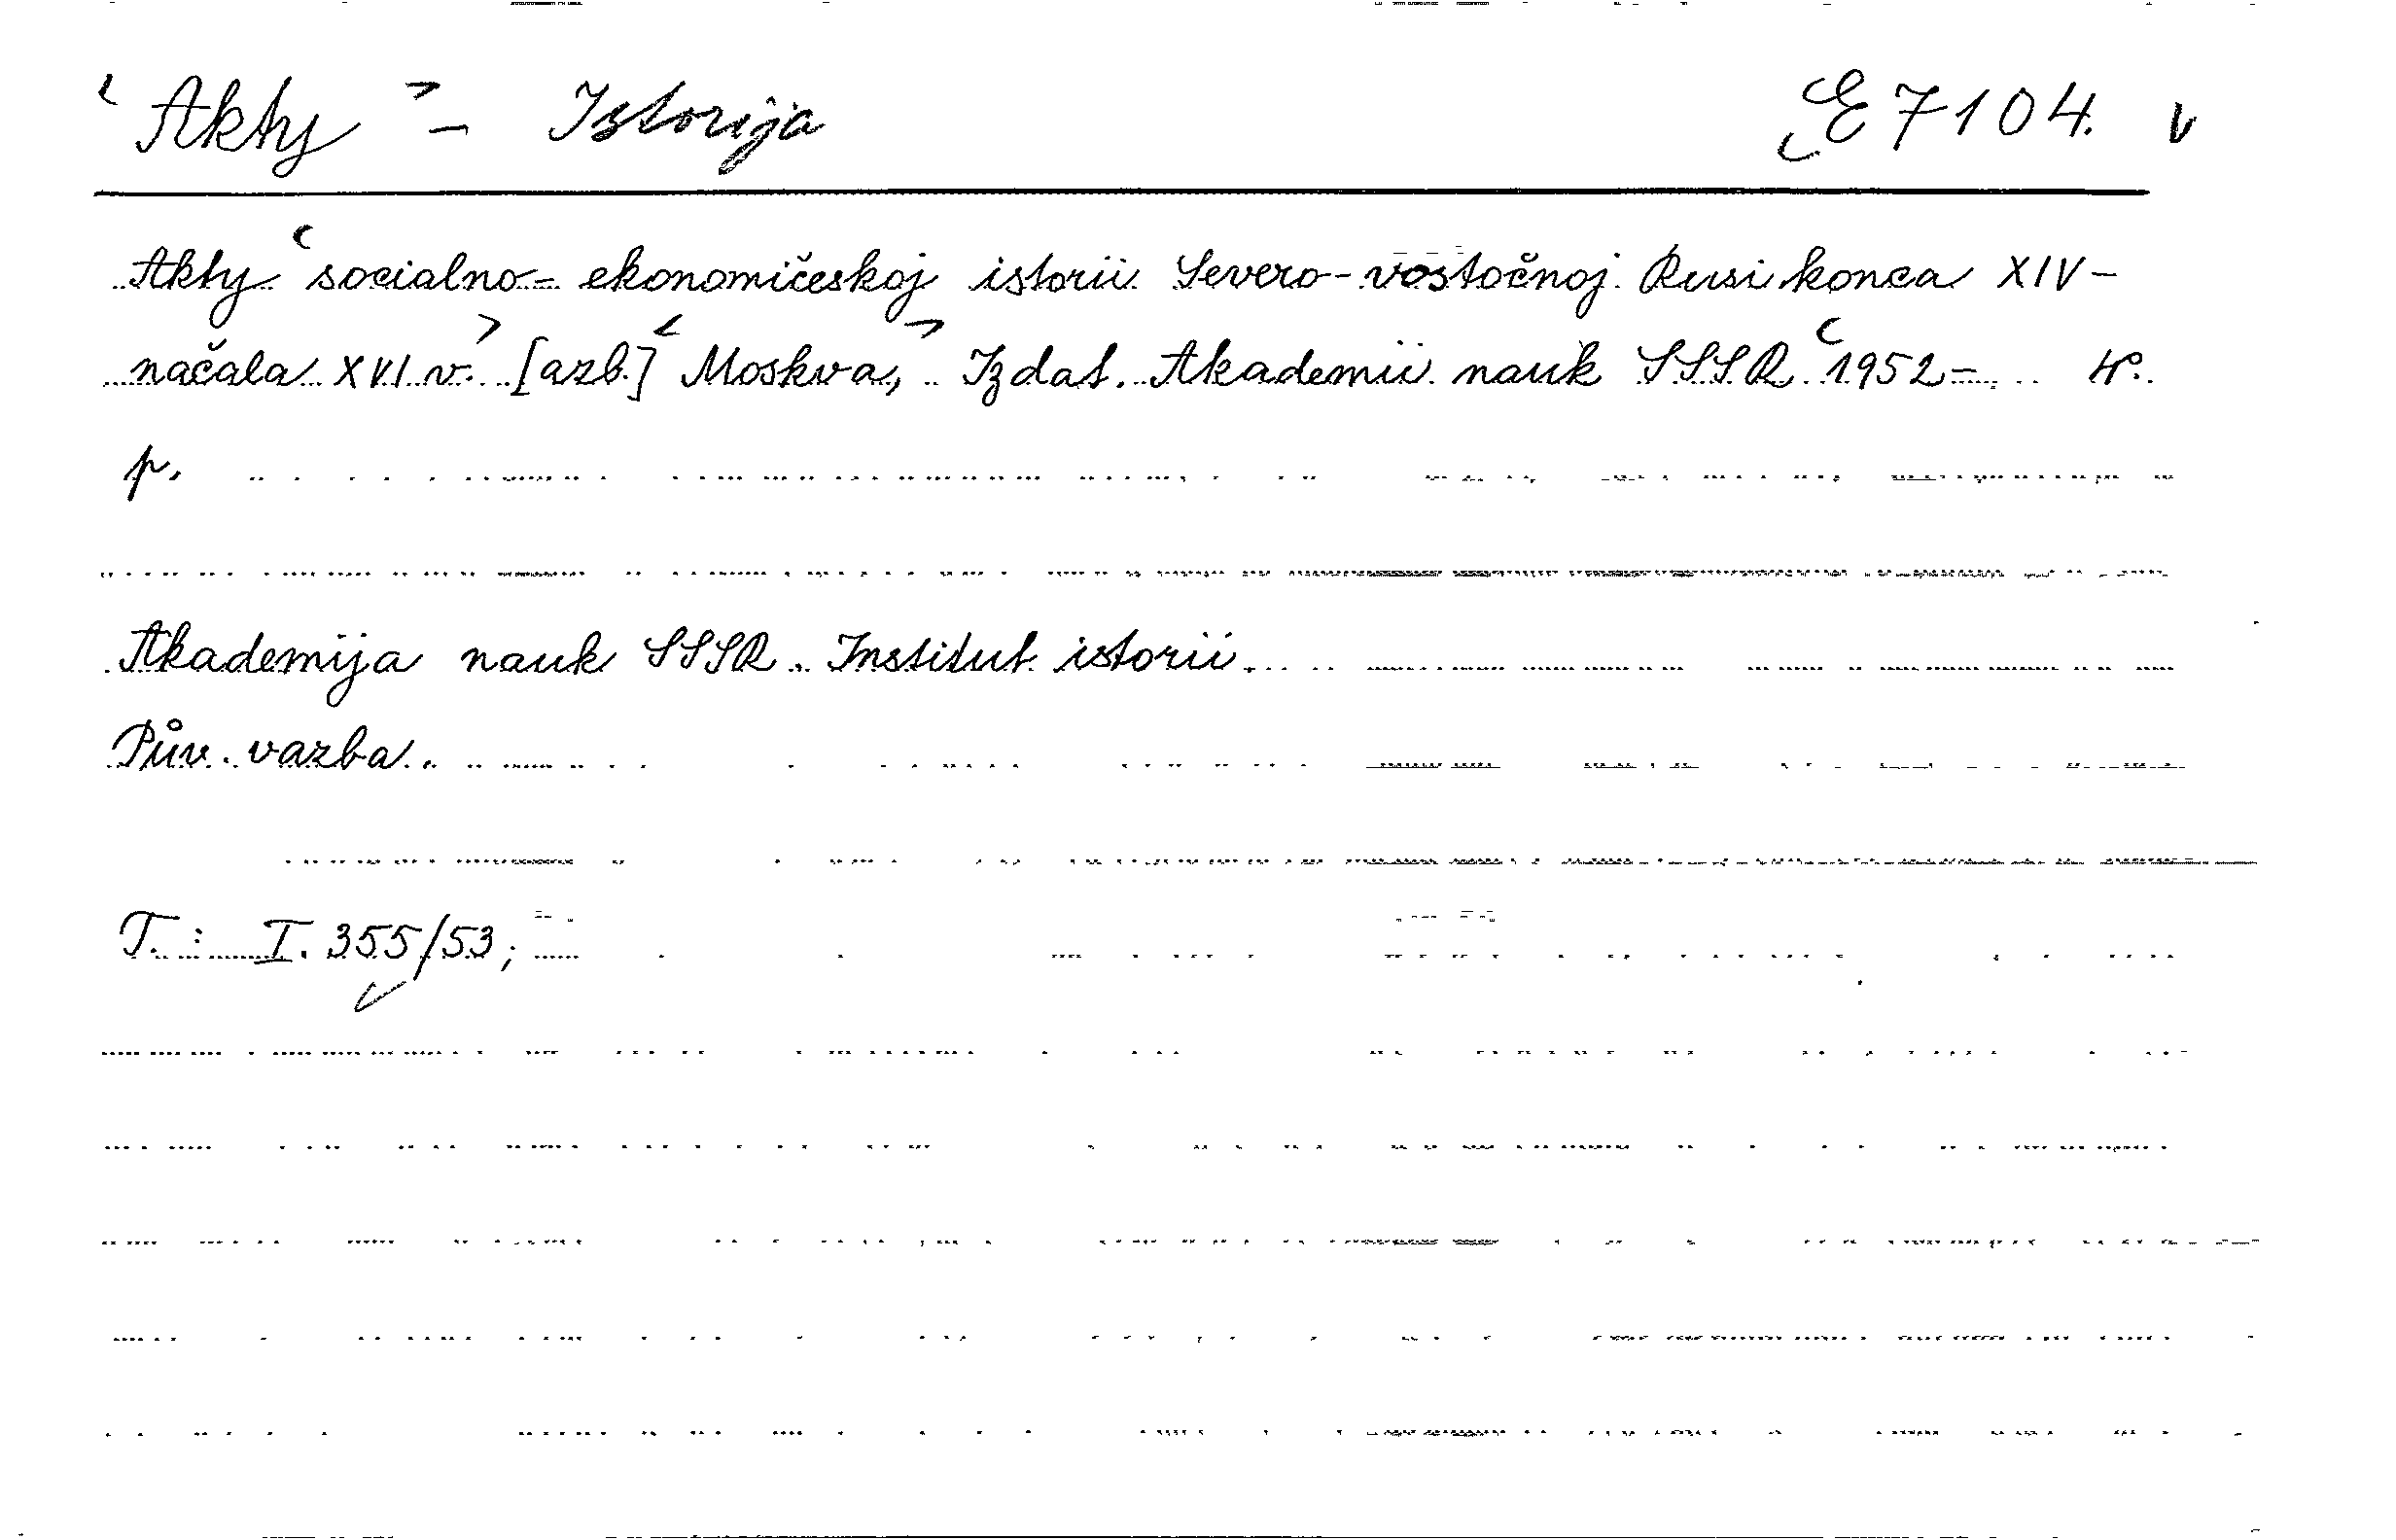 Akty - Istorija E 7104.
Akty socialno-ekonomičeskoj istorii Severo-vostočnoj Rusi konca XIV-
načala XVI v. [azb.] Moskva, Izdat. Akademii nauk SSSR 1952- 4°.
p.
Akademija nauk SSSR. Institut istorii.
Pův. vazba.
T.: I. 355/53;